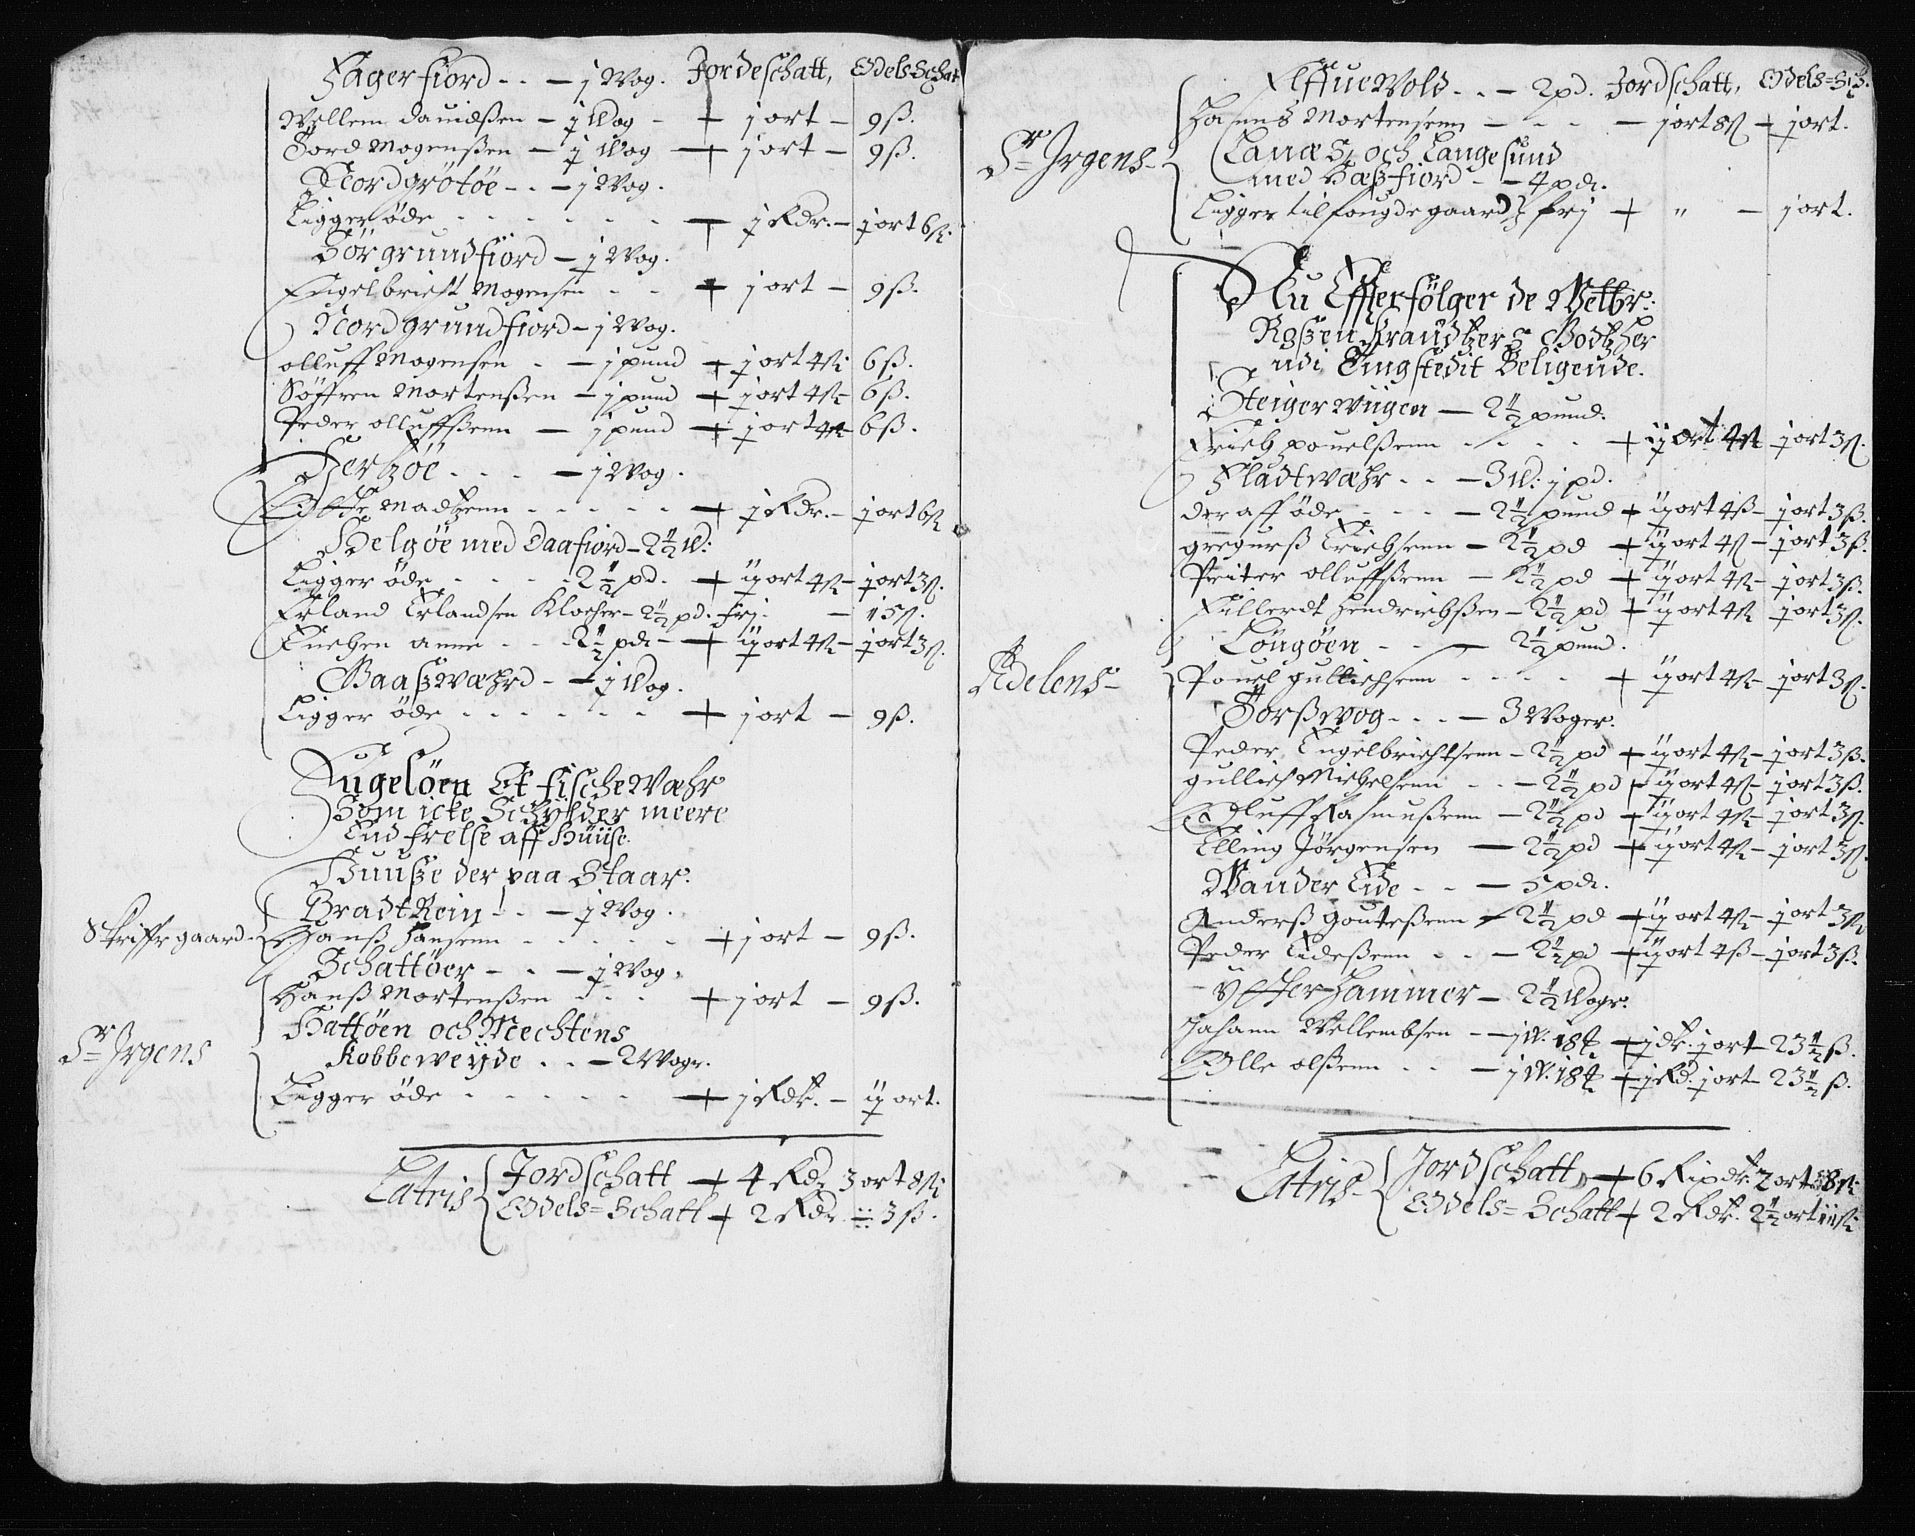 Fagerfiord - - - j Wog. Jordeschatt, Odels Schat
Wellem dauidßen - j Wog - + j ort - 9ß.
Tord Mogenßen - j Wog - + j ort - 9ß.
Nordgrötöe - - - j Wog.
Ligger öde - - - - - - + j Rdr. - j ort 6ß.
Sör grundfiord - j Wog.
Engelbriest Mogensen - - + j ort - 9ß.
Nord grundfiord - j Wog.
olluff Mogensen - - j pund + j ort 4ß 6ß.
Söffren Mortenßen - j pund + j ort 4ß - 6ß.
Peder olluffßenn - j pund + j ort 4ß - 6ß.
Hertzöe - - - - j Wog.
Madtzenn - - - - - + j Rdr. - j ort 6ß
Helgöe med Daafiord - 2½ W:
Ligger öde - - - - 2½ pd. - + ij ort 4ß - j ort 3ß.
Erland Erlandsen Klocher - 2½ pd. frj. - 15ß.
Enchen anne - - - 2½ pd. - + ij ort 4ß - j ort 3ß.
Baaßwæhrd - - j Wog.
Ligger öde - - - - - - + j ort - 9ß.
Lngelöen Et fische Wæhr
Som icke Schylder meere
End frelse aff Huuse
Huusze der paa Staar.
Bradt Rein - - - j Wog.
Skriffr gaard - Hanß hansenn - - - - - + j ort - 9ß.
Schattöer - - - j Wog.
Hanß Mortenßen - - - + j ort - 9ß.
Hattöen och Mechtens
Sr Jrgens
Kobbeweyde - - - 2 Wogr.
Ligger öde - - - - - + j Rdr. - ij ort.
Latris Jordschatt + 4 Rdr 3 ort 8ß
Odels = Schatt + 2 Rdr. = 3ß.
Elffue Wold - - - 2pd. Jordschatt, Odels=Sch.
Hanns Mortensenn - - - - j ort 8ß + j ort.
Sr Jrgens -
Lanæs, och Langesund
med Hæßfiord - - 4 pd.
Ligger til fougde gaard frj + " - j ort.
Nu Effterfölger de Welbr:
Roßen Krandtzers Godtzer
udi Tingstedit Beligende.
Steiger Wiigen - 2½ pund.
Erich pouelßenn - - - - + ij ort 4ß j ort 3ß.
Fladtwæhr - - - 3 W: j pd.
der aff öde - - - - 2½ pund + ij ort 4ß - j ort 3ß.
gregurß Erichsenn - 2½ pd + ij ort 4ß - j ort 3ß.
Peiter olluffßenn - 2½ pd + ij ort 4ß - j ort 3ß.
Fillerdt Hendrichßen - 2½ pd + ij ort 4ß j ort 3ß.
Löugöen - - - 2½ pund.
Adelens -
Pouel gullichsenn - - - - + ij ort 4ß - j ort 3ß.
Norßwog - - - - 3 Woger.
Peder Engelbrichtsenn - 2½ pd + ij ort 4ß - j ort 3ß.
gullich Michelsenn - - - 2½ pd + ij ort 4ß - j ort 3ß.
Olluff Rasmußenn - 2½ pd + ij ort 4ß - j ort 3ß.
Elling Jörgensen - 2½ pd + ij ort 4ß - j ort 3ß.
Wander Eide - - - 5 pd.
Anderß Gouteßenn - 2½ pd + ij ort 4ß - j ort 3ß
Peder Eideßenn - - - 2½ pd + ij ort 4ß - j ort 3ß.
Ytterhammer - 2½ Wogr:
Johann Wellembsen - j W. 18 + j dr. j ort - 23½ ß.
Olle olßenn - - - j W. 18 + j Rd. j ort - 23½ ß.
Latris - Jordschatt, + 6 Ripdr. 2 ort 8ß
Odels = Schatt + 2 Rdr. 2½ ort iiß